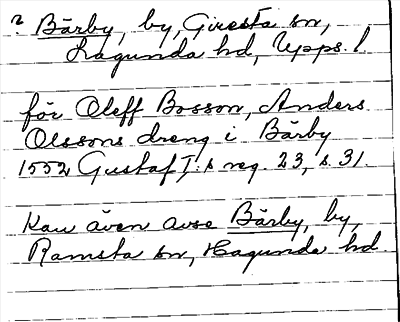 ? Bärby, by, Giresta sn,
Lagunda hd, Upps. l.
för Oleff Bosson, Anders
Olssons dreng i Bärby
1552 Gustaf I:s reg. 23, s. 31.
Kan även avse Bärby, by,
Ramsta sn, Hagunda hd.